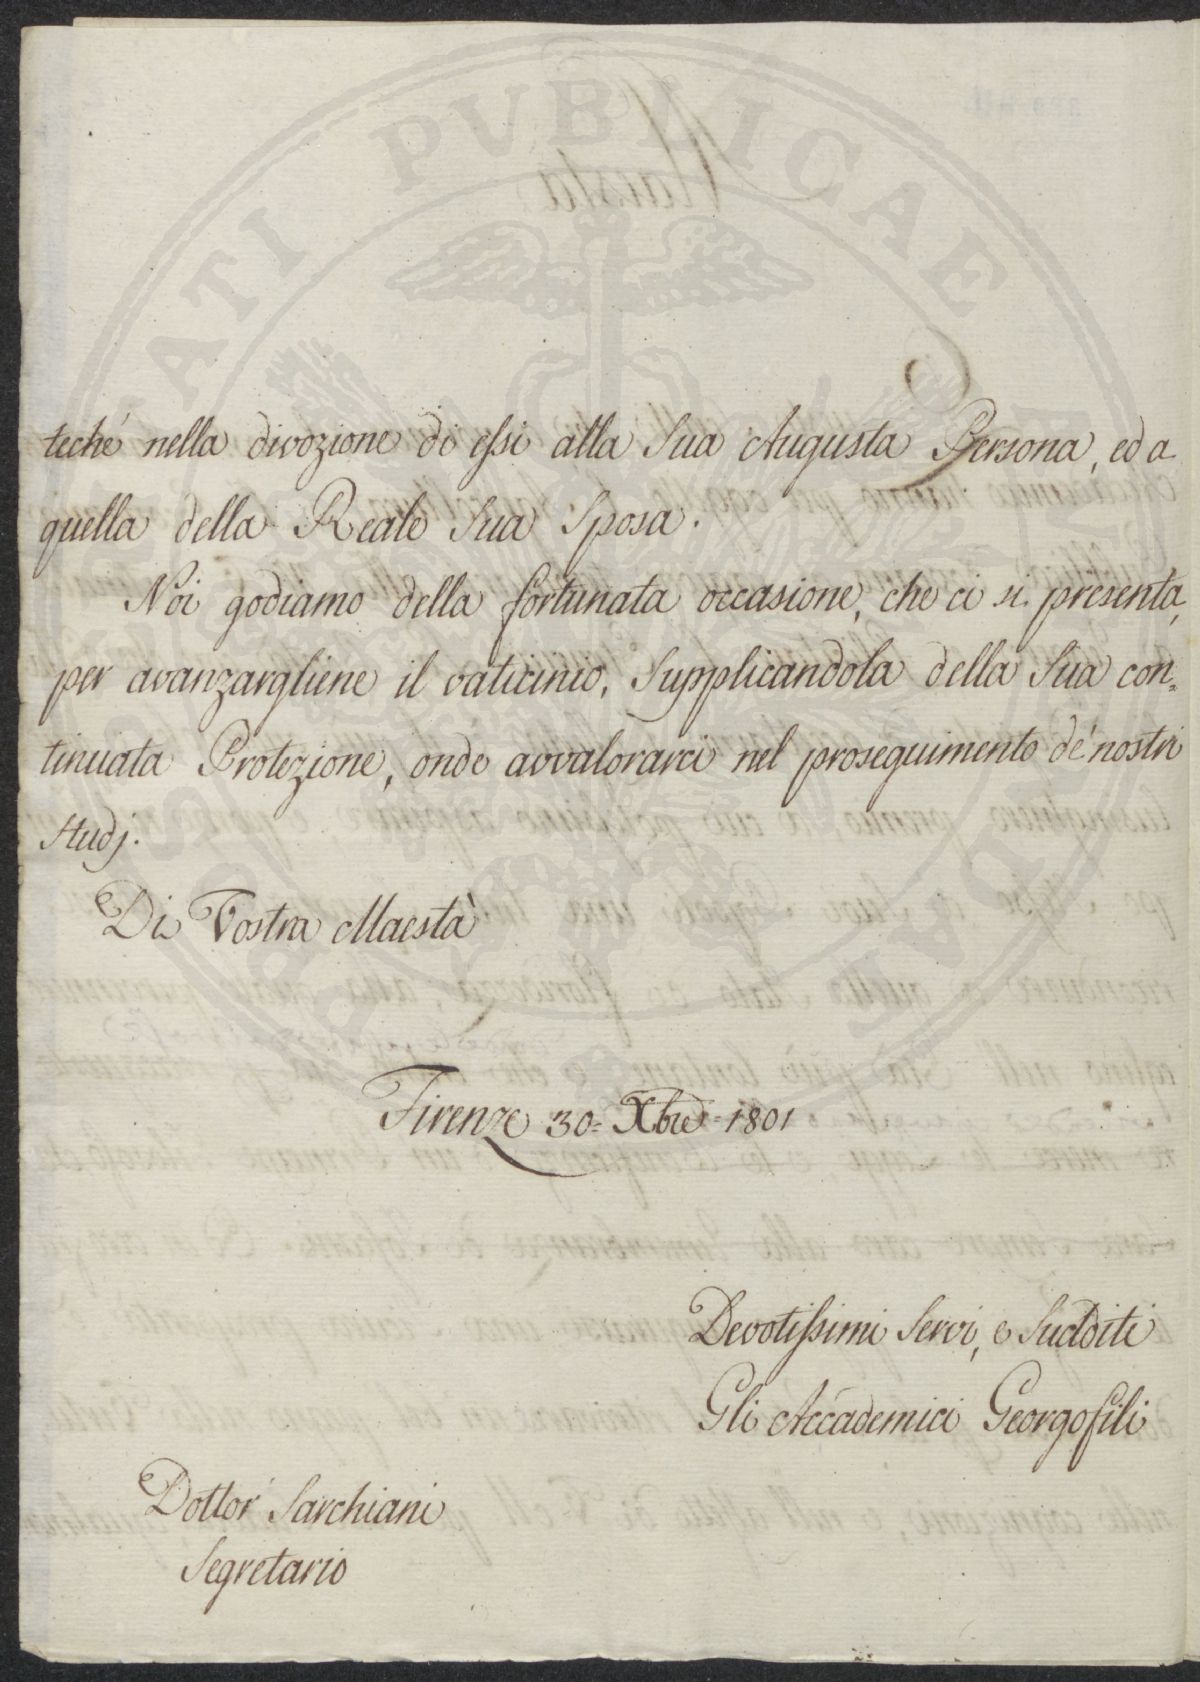 teché nella divozione di essi alla Sua Augusta Persona, ed a
quella della Reale Sua Sposa.
Noi godiamo della fortunata occasione, che ci si presenta,
per avanzargliene il vaticinio, Supplicandola della Sua con=
tinuata Protezione, onde avvalorarci nel proseguimento de' nostri
Studj.
Di Vostra Maestà
Firenze 30= Xbre 1801
Devotissimi Servi, e Sudditi
Gli Accademici Georgofili
Dottor Sarchiani
Segretario